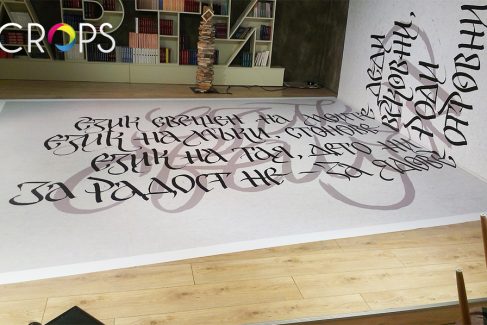 CROPS
Език свещен на моите деди
език на мъки, стонове вековни,
език на тая, дето ни роди
за радост не – за ядове отровни